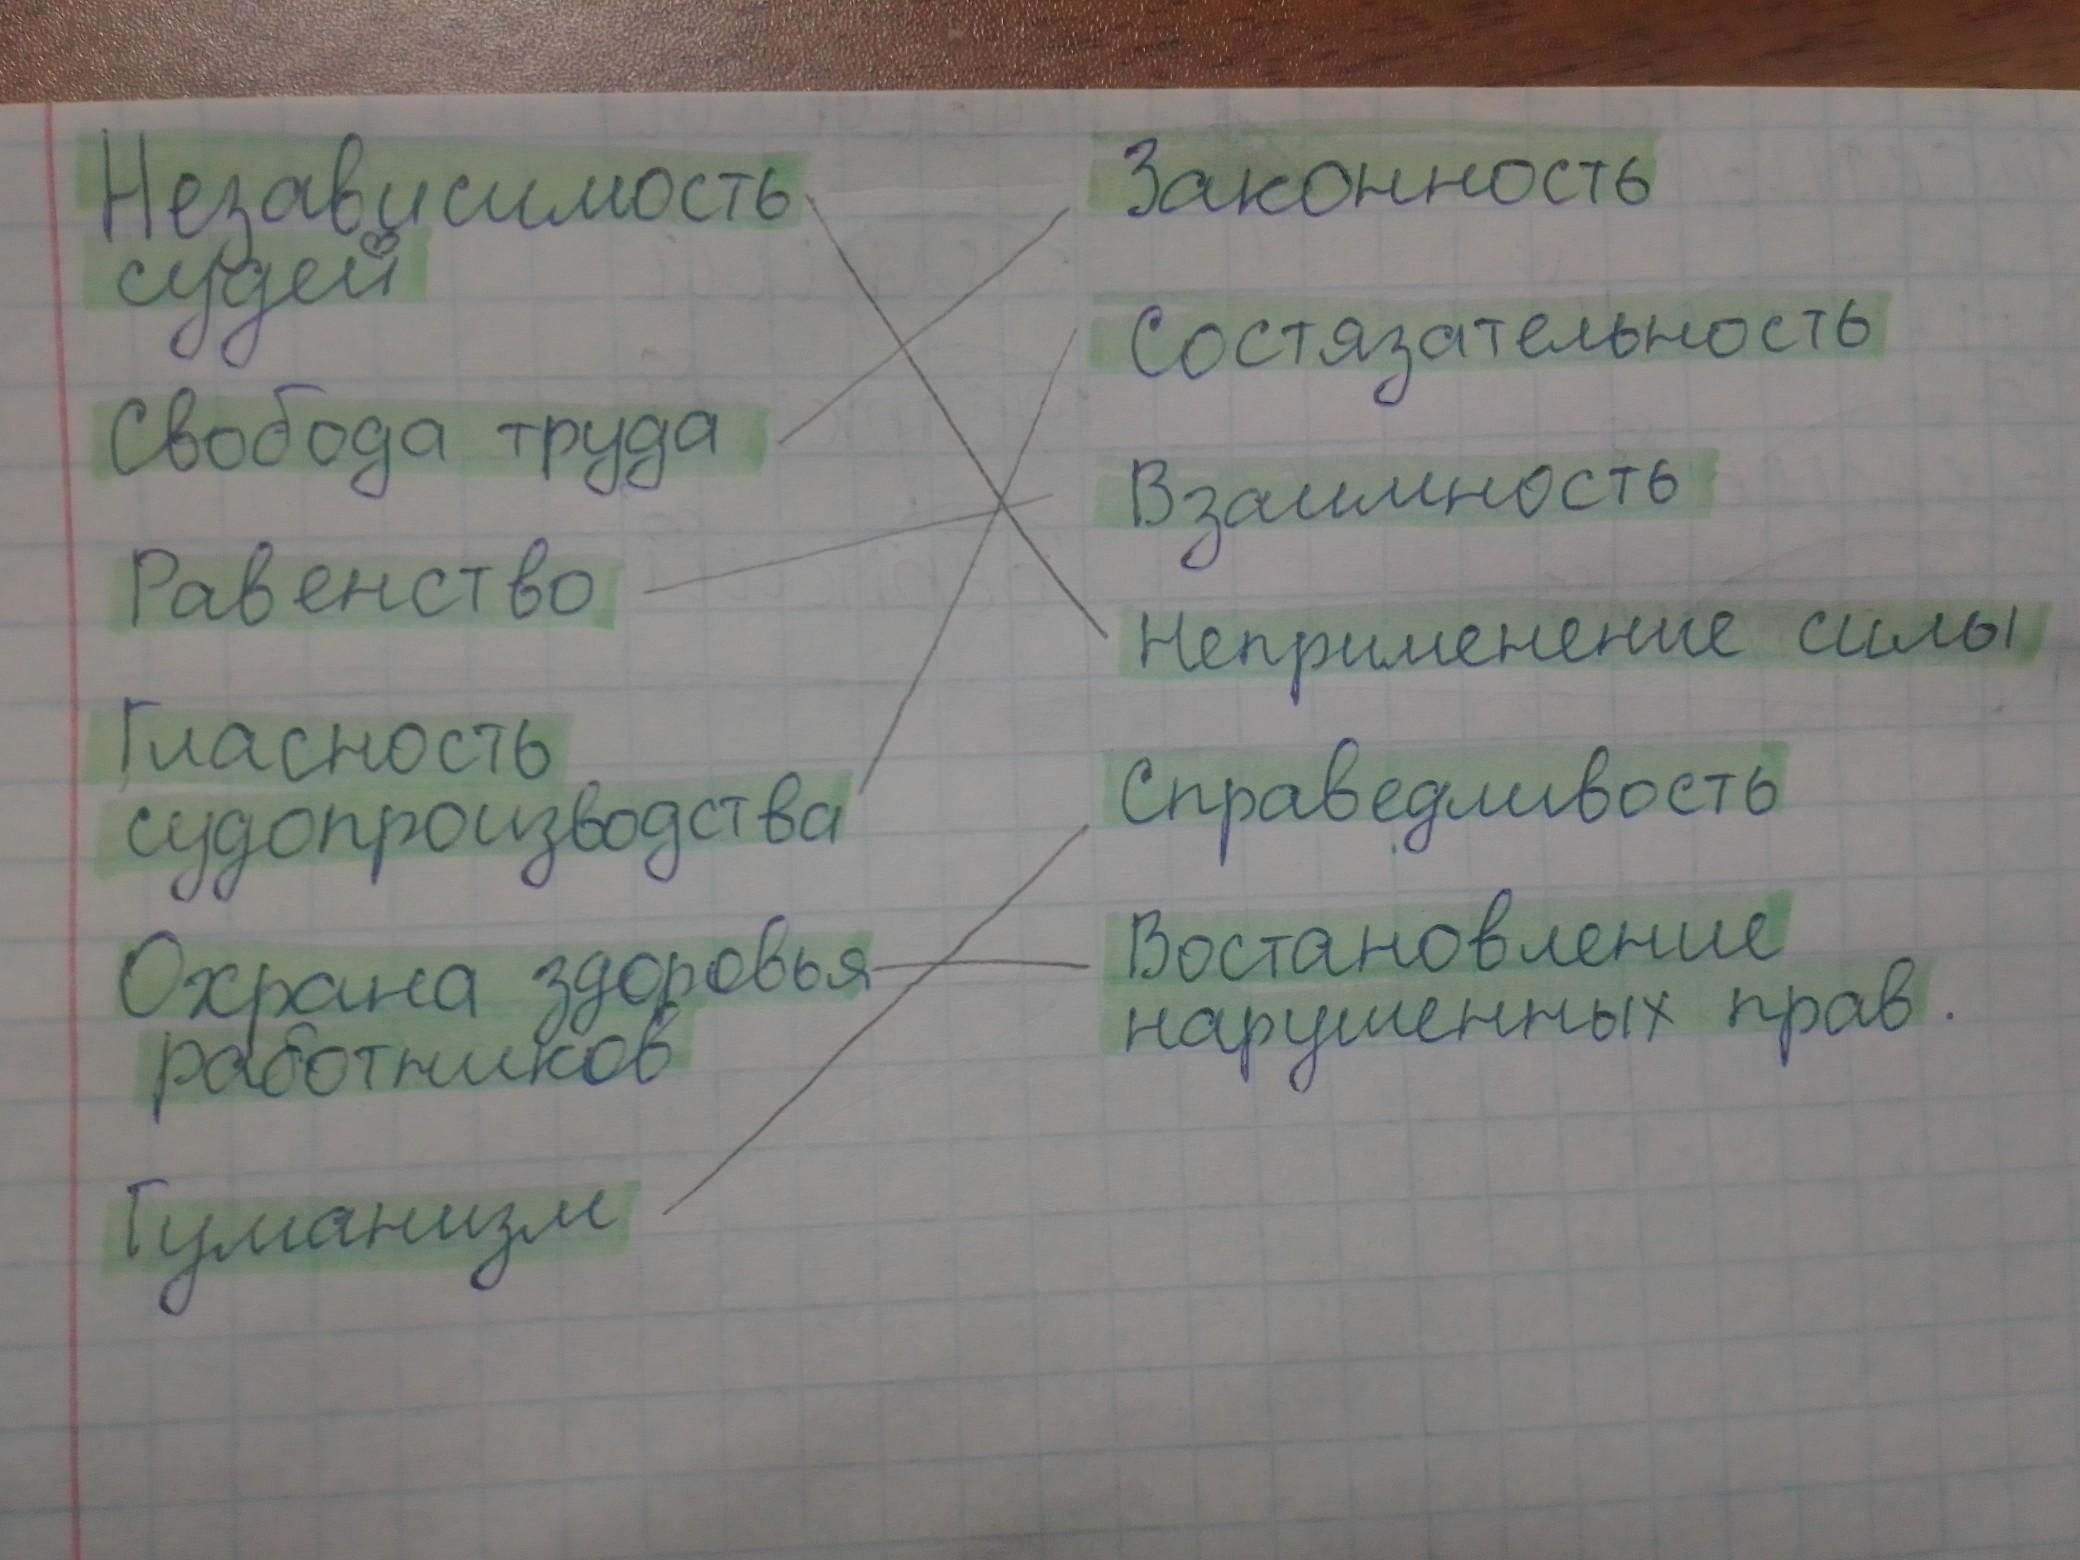 Независимость
судей
Свобода труда
Равенство
Гласность
судопроизводства
Охрана здоровья
работников
Гуманизм
Законность
Состязательность
Взаимность
Неприменение силы
Справедливость
Востановление
нарушенных прав.